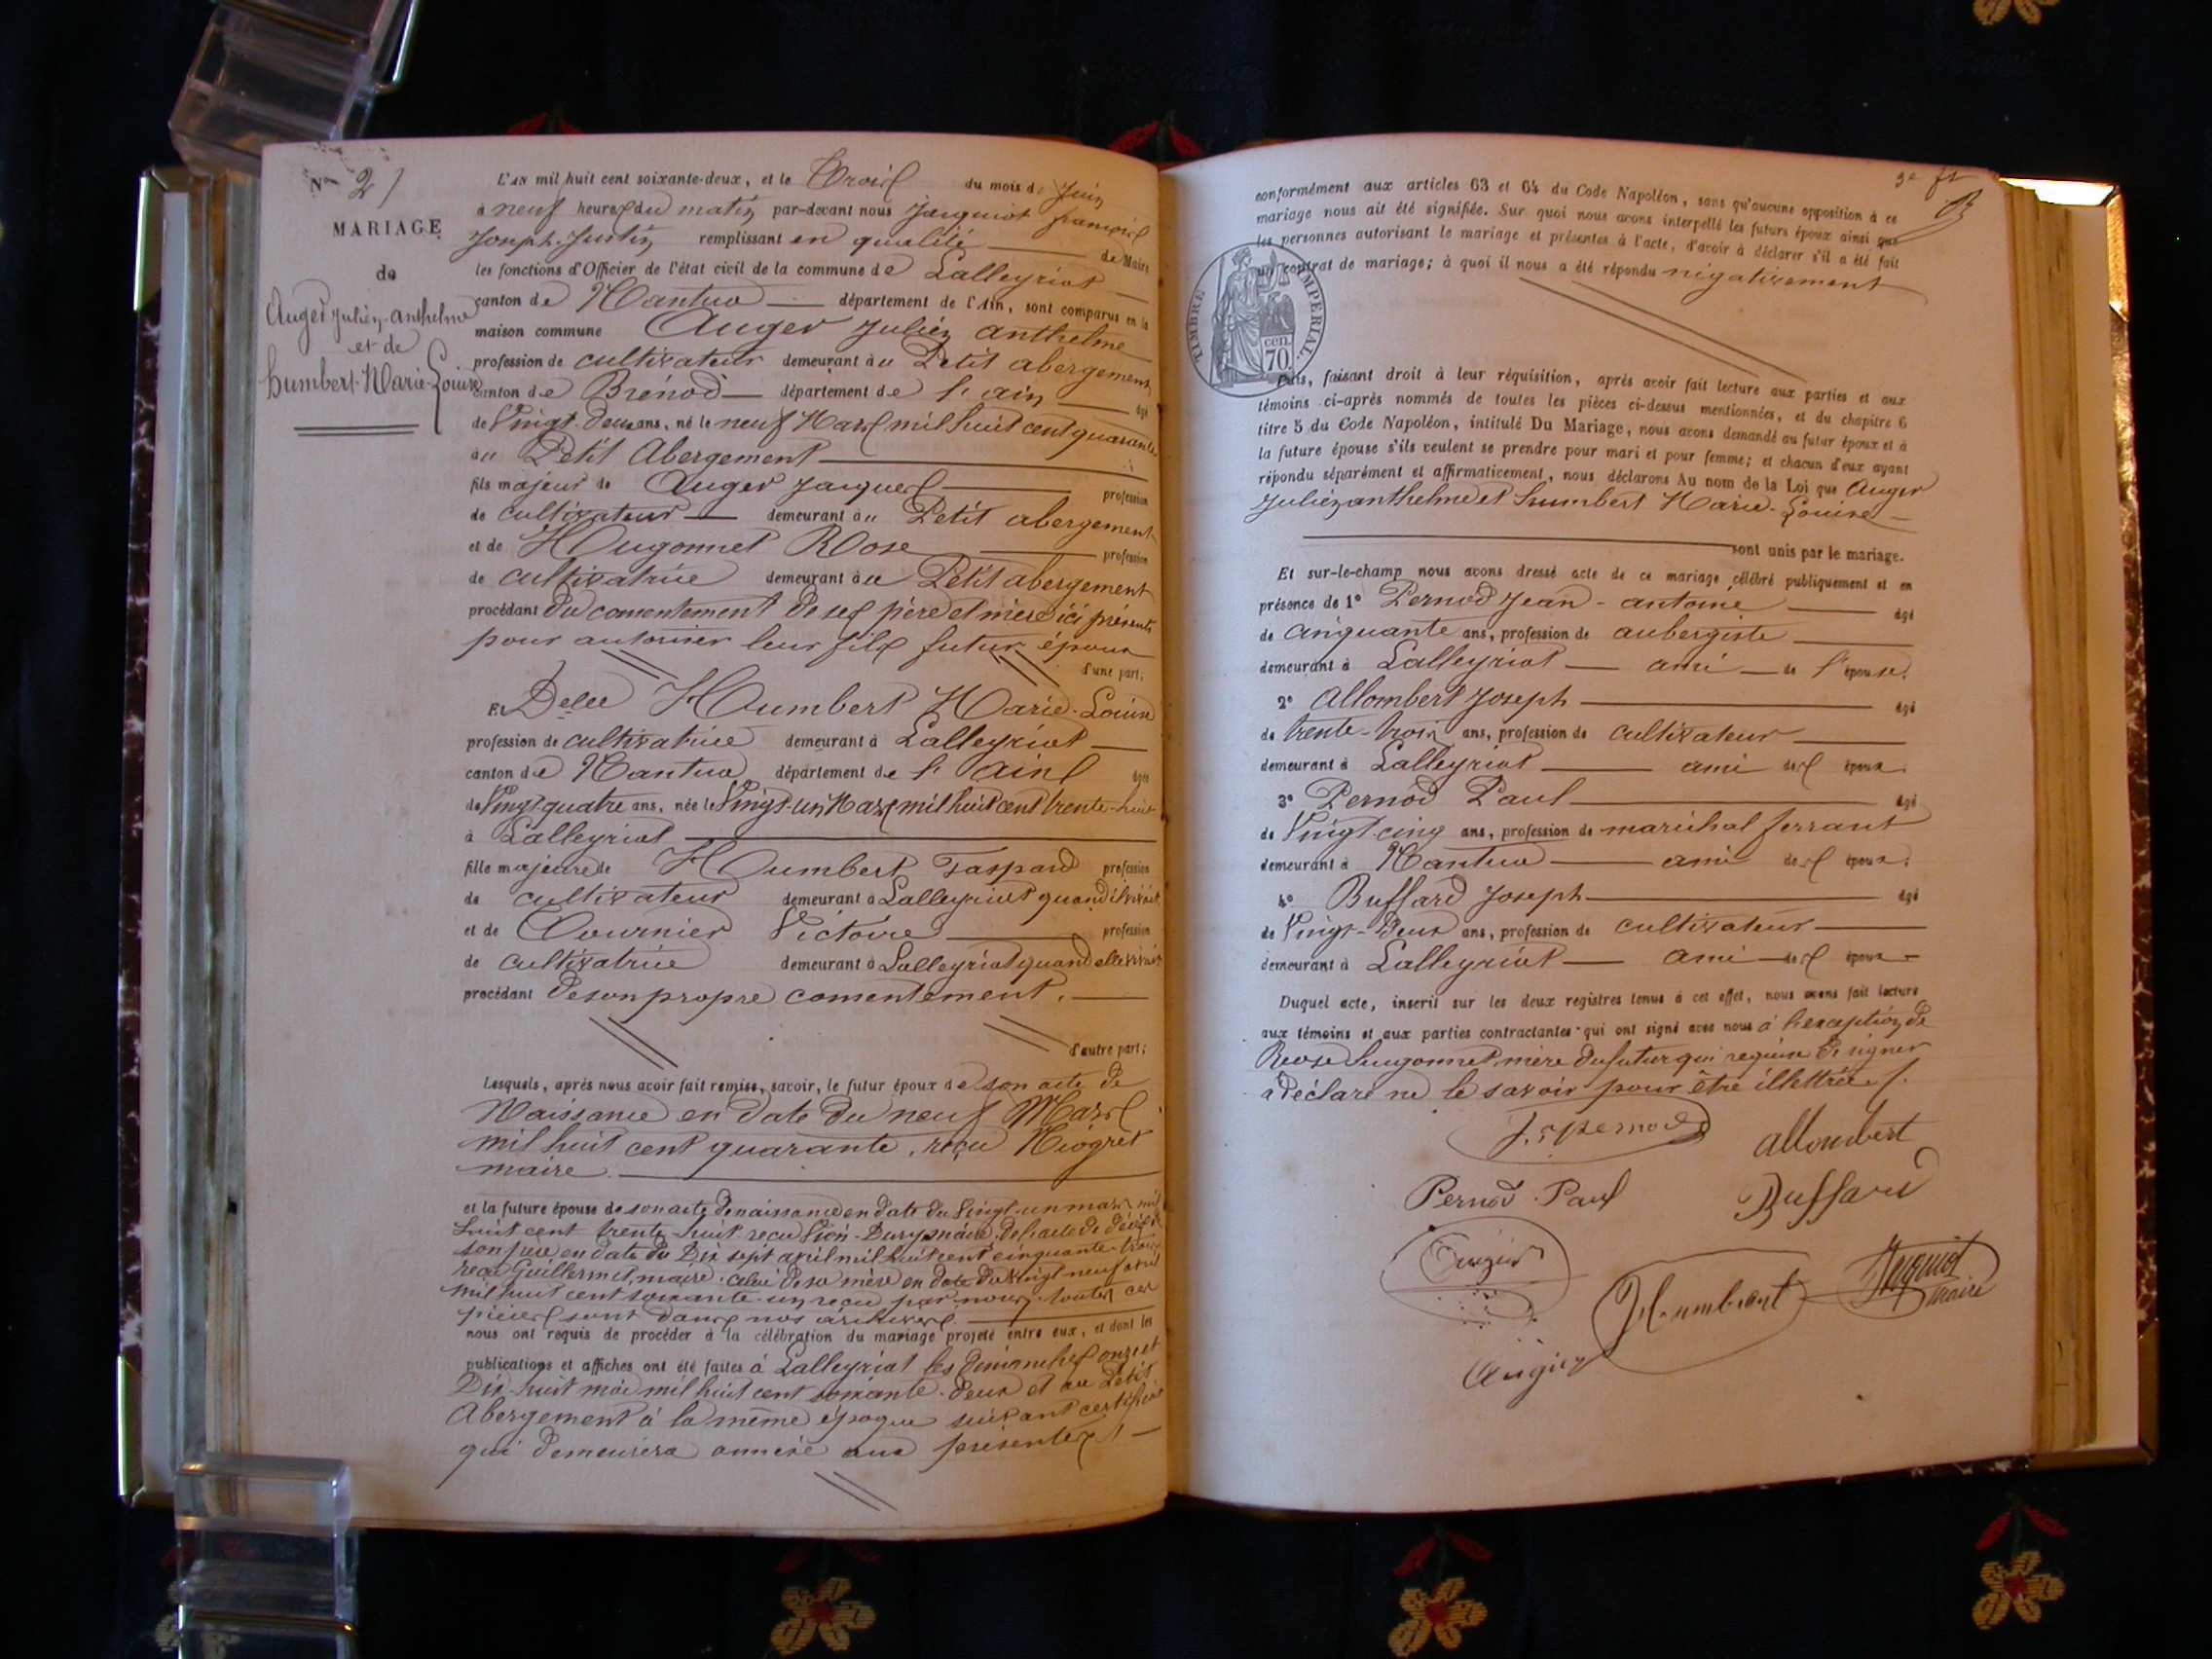 N° 2
MARIAGE
de
Auger Julien-anthelme
et de
humbert-Marie-Louise
L'AN mil huit cent soixante-deux, et le Trois du mois de Juin
à neuf heures du matin par-devant nous Jacquiot françois
Joseph-Justin remplissant en qualité de Maire
les fonctions d'Officier de l'état civil de la commune de Lalleyriat
canton de Nantua département de l'Ain, sont comparus en la
maison commune Auger Julien anthelme
profession de cultivateur demeurant au Petit abergement
canton de Brénod département de l'ain âgé
de Vingt-deux ans, né le neuf Mars mil huit cent quarante
au Petit Abergement
fils majeur de Auger Jacques profession
de cultivateur demeurant au Petit abergement
et de Hugonnet Rose profession
de cultivatrice demeurant au Petit abergement
procédant du consentement de ses père et mère ici présents
pour autoriser leur fils futur époux
d'une part;
Et Delle Humbert Marie-Louise
profession de cultivatrice demeurant à Lalleyriat
canton de Nantua département de l'ain âgée
de Vingt-quatre ans, née le Vingt-un Mars mil huit cent trente-huit
à Lalleyriat
fille majeure de Humbert Gaspard profession
de cultivateur demeurant à Lalleyriat quand il vivait
et de Tournier Victoire profession
de cultivatrice demeurant à Lalleyriat quand elle vivait
procédant de son propre consentement.
d'autre part;
Lesquels, après nous avoir fait remise, savoir, le futur époux de son acte de
Naissance en date du neuf Mars
mil huit cent quarante, reçu Niogret
maire.
et la future épouse de son acte de naissance en date du Vingt-un mars mil
huit cent trente-huit reçu maire, de l'acte de décès de
son père en date du Dix sept avril mil huit cent cinquante-trois
reçu Guillermet, maire. celui de sa mère en date du vingt neuf avril
mil huit cent soixante-un reçu par nous. toutes ces
pièces sont dans nos archives.
nous ont requis de procéder à la célébration du mariage projeté entre eux, et dont les
publications et affiches ont été faites à Lalleyriat les dimanches onze et
Dix-huit mai mil huit cent soixante-deux et au Petit
Abergement à la même époque suivant certificat
qui demeurera annexé aux présentes
conformément aux articles 63 et 64 du Code Napoléon, sans qu'aucune opposition à ce
mariage nous ait été signifiée. Sur quoi nous avons interpellé les futurs époux ainsi que
les personnes autorisant le mariage et présentes à l'acte, d'avoir à déclarer s'il a été fait
un contrat de mariage; à quoi il nous a été répondu négativement
TIMBRE IMPERIAL.
70 cen.
Puis, faisant droit à leur réquisition, après avoir fait lecture aux parties et aux
témoins ci-après nommés de toutes les pièces ci-dessus mentionnées, et du chapitre 6
titre 5 du Code Napoléon, intitulé Du Mariage, nous avons demandé au futur époux et à
la future épouse s'ils veulent se prendre pour mari et pour femme; et chacun d'eux ayant
répondu séparément et affirmativement, nous déclarons Au nom de la Loi que Auger
Julien anthelme et humbert Marie-Louise
sont unis par le mariage.
Et sur-le-champ nous avons dressé acte de ce mariage célébré publiquement et en
présence de 1° Pernod Jean-antoine âgé
de cinquante ans, profession de aubergiste
demeurant à Lalleyriat ami de l'épouse.
2° Allombert Joseph âgé
de trente-trois ans, profession de cultivateur
demeurant à Lalleyriat ami des époux.
3° Pernod Paul âgé
de Vingt-cinq ans, profession de maréchal ferrant
demeurant à Nantua ami des époux.
4° Buffard Joseph âgé
de Vingt-Deux ans, profession de cultivateur
demeurant à Lalleyriat ami des époux
Duquel acte, inscrit sur les deux registres tenus à cet effet, nous avons fait lecture
aux témoins et aux parties contractantes qui ont signé avec nous à l'exception de
Rose hugonnet, mère du futur qui requise de signer
a déclaré ne le savoir pour être illettrée.
J. A pernod
allombert
Pernod Paul
Buffard
Augier
Humbert
Jacquiot
maire
Augier